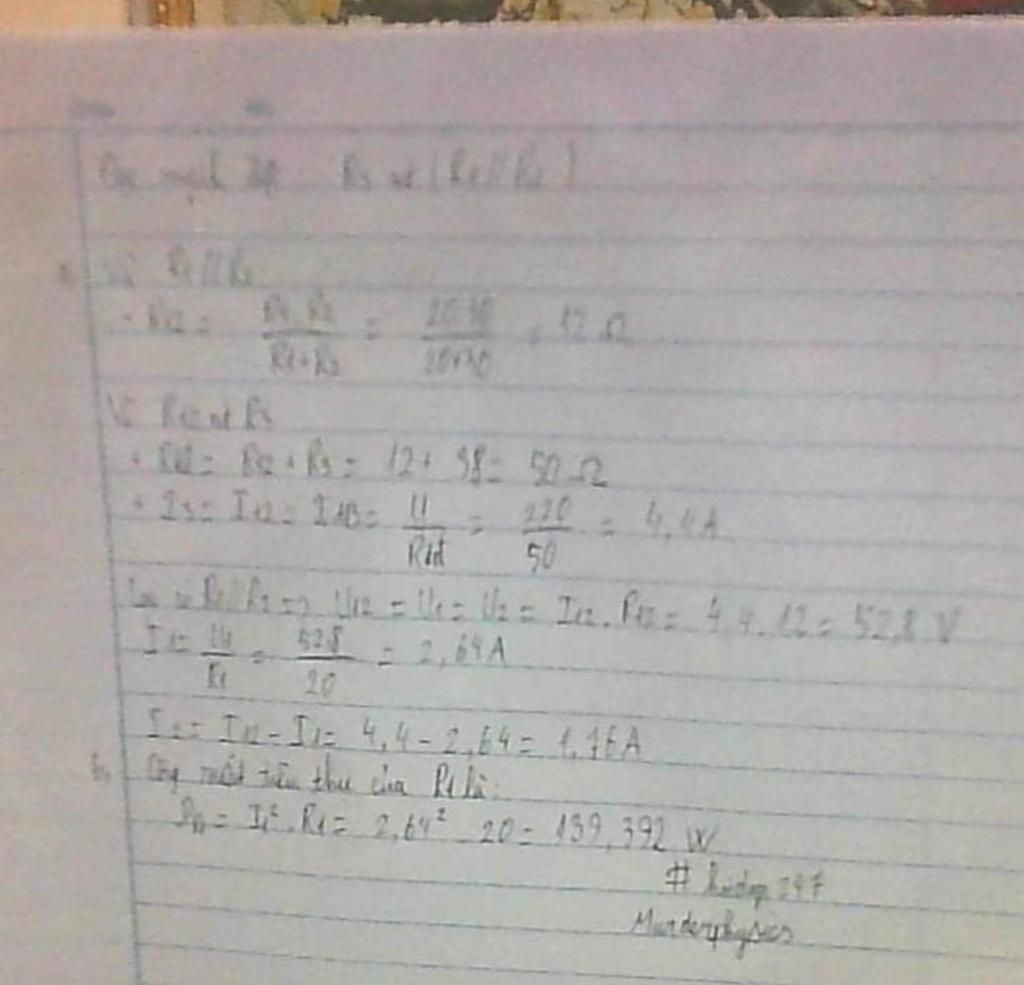 R3 nt (R1 // R2)
a. Vì R1 // R2
+ R12 = R1.R2 / R1+R2 = 20.30 / 20+30 = 12 Ω
Vì R12 nt R3
+ Rtđ = R12 + R3 = 12 + 38 = 50 Ω
+ I3 = I12 = IAB = U / Rtđ = 220 / 50 = 4,4A
R1 // R2 => U12 = U1 = U2 = I12 . R12 = 4,4 . 12 = 52,8 V
I1 = U1 / R1 = 52,8 / 20 = 2,64A
I2 = I12 - I1 = 4,4 - 2,64 = 1,76A
b. Công suất tiêu thụ của R1 là:
= I1² . R1 = 2,64² 20 = 139,392 W
# hoidap247
Murderphysics